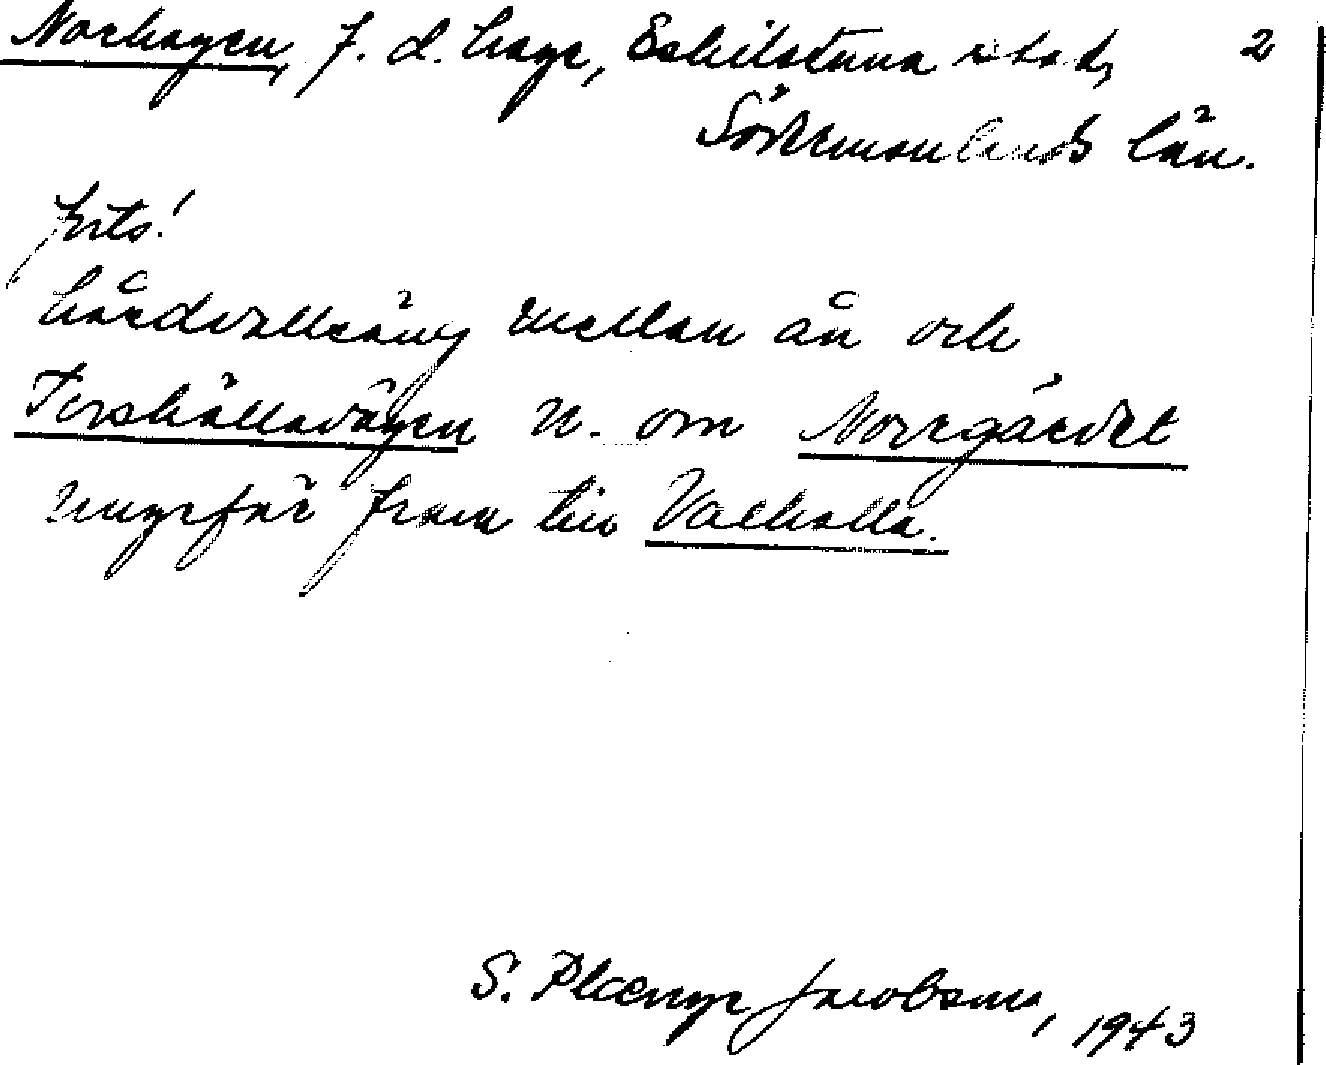 Norhagen, f. d. hage, Eskilstuna stad, 2
Södermanlands län.
forts!
hårdvalläng mellan ån och
Torshällavägen n. om Norrgärdet
ungefär fram till Valhalla.
S. Plænge Jacobson, 1943